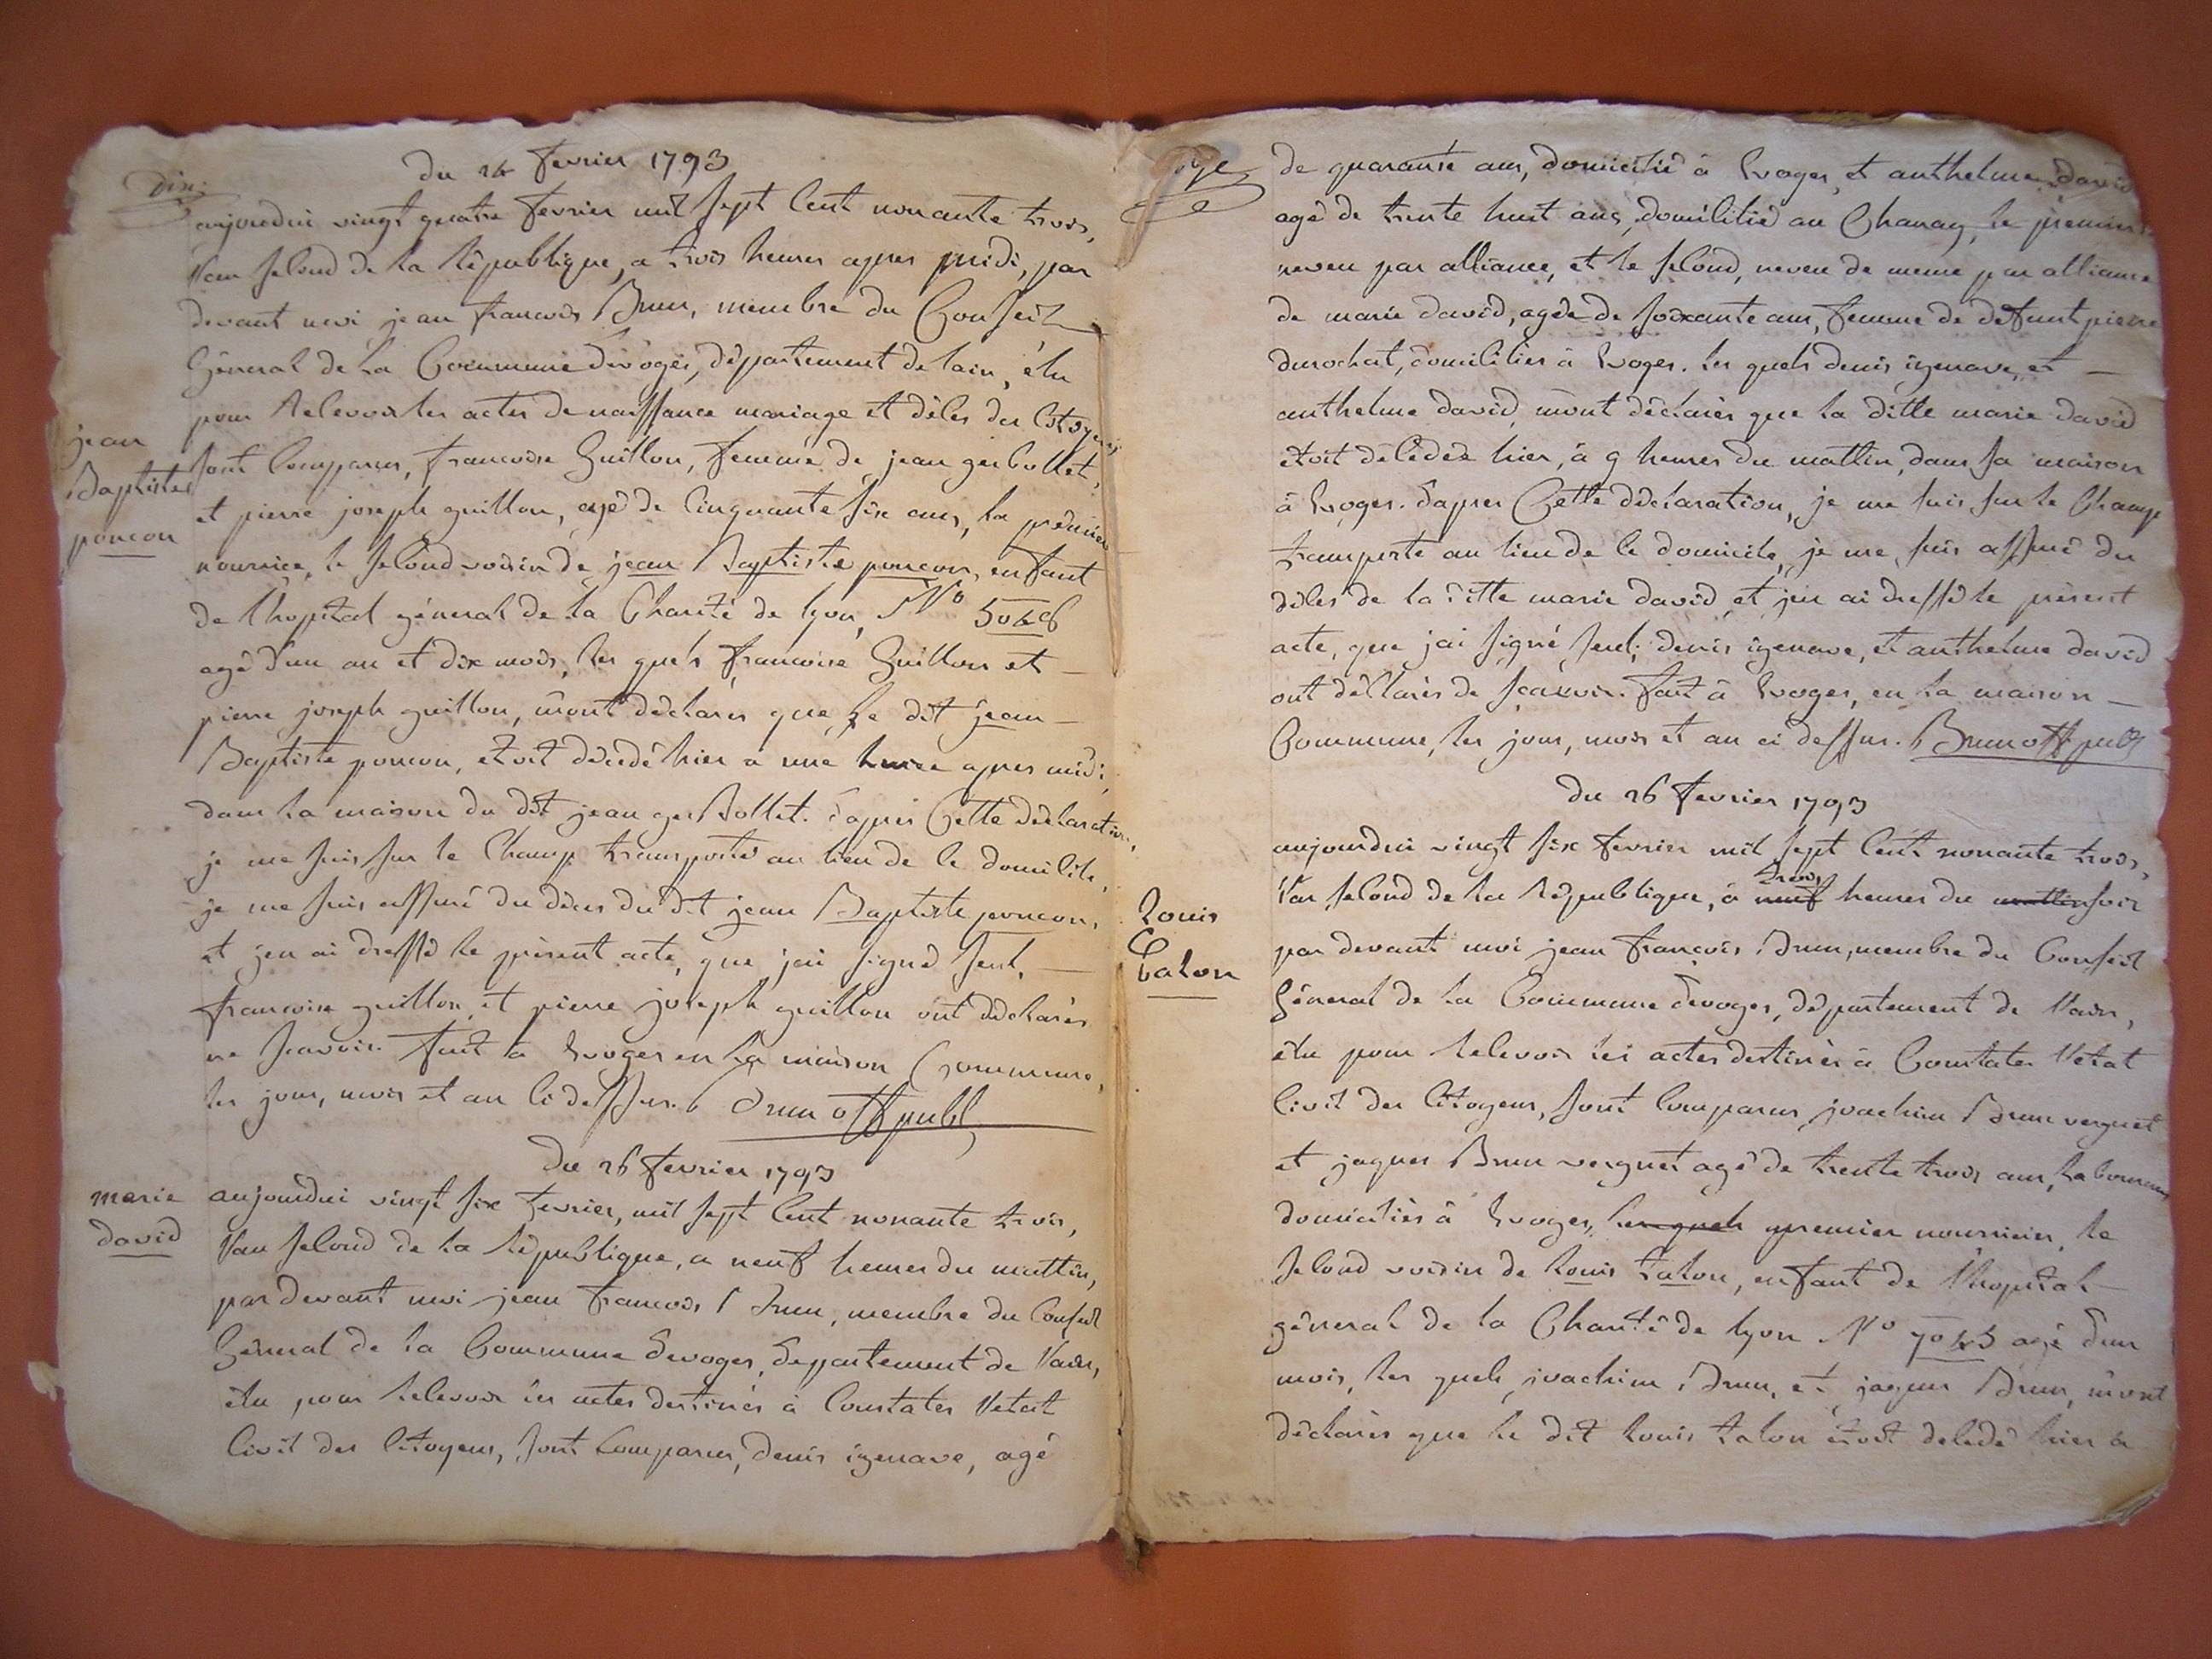 dix
du 24 fevrier 1793
aujourdui vingt quatre fevrier mil sept cent nonante trois,
l'an second de la république, a trois heures apres midi, par
devant moi jean francois Brun, membre du Conseil
Géneral de la Commune devoges, département de lain, élu
pour recevoir les actes de naissance mariage et dèces des Citoyens,
jean
Baptiste
poncon
sont comparus, francoise Guillon, femme de jean gerbollet,
et pierre joseph guillon, agé de cinquante six ans, la prémiere
nourrice, le second voisin de jean Baptiste poncon, enfant
de lhopital géneral de la Charité de lyon, No 5046
agé d'un an et dix mois, les quels francoise Guillon et
pierre joseph guillon, m'ont déclarés que le dit jean
Baptiste poncon, etoit décédé hier a une heure apres midi
dans la maison du dit jean gerbollet. dapres Cette déclaration,
je me suis sur le Champ transporté au lieu de ce domicile,
je me suis assuré du déces du dit jean Baptiste poncon,
et jen ai dressé le présent acte, que jai signé seul,
francoise guillon, et pierre joseph guillon ont déclarés
ne scavoir. fait à Evoges en la maison Commune,
les jour, mois et an ci dessus. Brun off publ
du 26 fevrier 1793
marie
david
aujourdui vingt six fevrier, mil sept cent nonante trois,
l'an second de la république, a neuf heures du mattin,
par devant moi jean francois Brun, membre du Conseil
Géneral de la Commune devoges, departement de l'ain,
élu pour recevoir les actes destinés à constater l'etat
civil des citoyens, sont comparus, denis izenave, agé
de quarante ans, domicilié à Evoges, et anthelme david
agé de trente huit ans, domicilié au Chanay, le premier
neveu par alliance, et le second, neveu de meme par alliance
de marie david, agée de soixante ans, femme de défunt pierre
durochat, domiciliés à Evoges. les quels denis izenave, et
anthelme david, m'ont déclarés que la ditte marie david
étoit décédée hier, à 9 heures du mattin, dans sa maison
à Evoges. dapres Cette déclaration, je me suis sur le Champ
transporté au lieu de ce domicile, je me suis assuré du
déces de la ditte marie david, et jen ai dressé le présent
acte, que jai signé seul; denis izenave, et anthelme david
ont déclarés de scavoir. fait à Evoges, en la maison
Commune, les jour, mois et an ci dessus. Brun off publ
du 26 fevrier 1793
aujourdui vingt six fevrier mil sept cent nonante trois,
l'an second de la république, à neuf trois heures du mattin soir
Louis
Talon
par devant moi jean françois Brun, membre du Conseil
Géneral de la Commune devoges, département de l'ain,
élu pour recevoir les actes destinés à constater l'etat
civil des citoyens, sont comparus joachim Brun verguet
et jaques Brun verguet agé de trente trois ans, laboureurs
domiciliés à Evoges, les quels premier nourricier, le
second voisin de louis talon, enfant de l'hopital
géneral de la Charité de lyon No 7043 agé d'un
mois, les quels joachim Brun, et jaques Brun, m'ont
déclarés que le dit louis talon étoit décédé hier à